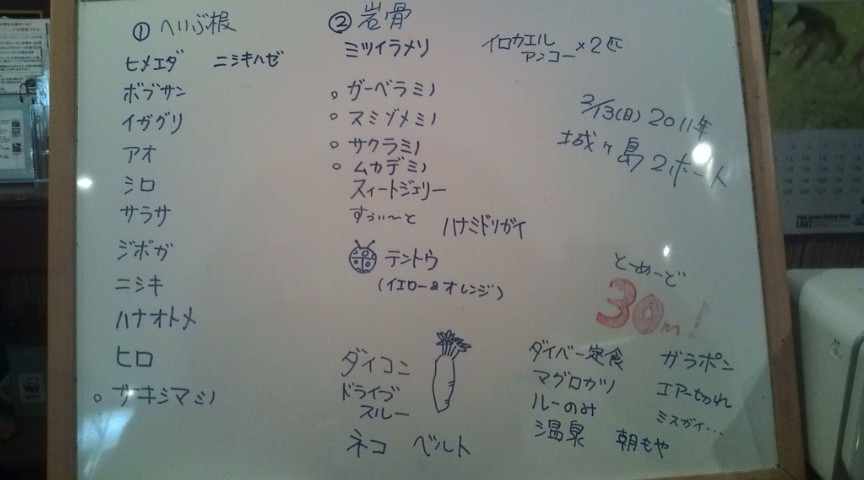 ① へいぶ根
ヒメエダ ニシキハゼ
ボブサン
イガグリ
アオ
シロ
サラサ
ジボガ
ニシキ
ハナオトメ
ヒロ
○ サキシマミノ
② 岩骨
ミツイラメリ
○ ガーベラミノ
○ スミゾメミノ
○ サクラミノ
○ ムカデミノ
スィートジェリー
すぅぃ〜と ハナミドリガイ
テントウ
(イエロー&オレンジ)
ダイコン
ドライブ
スルー
ネコ ベルト
イロカエル
アンコー ×2匹
2/13(日) 2011年
城ヶ島 2ボート
とーめーど
30m!
ダイバー定食 ガラポン
マグロカツ エアー切れ
ルーのみ ミスガイ…
温泉 朝もや